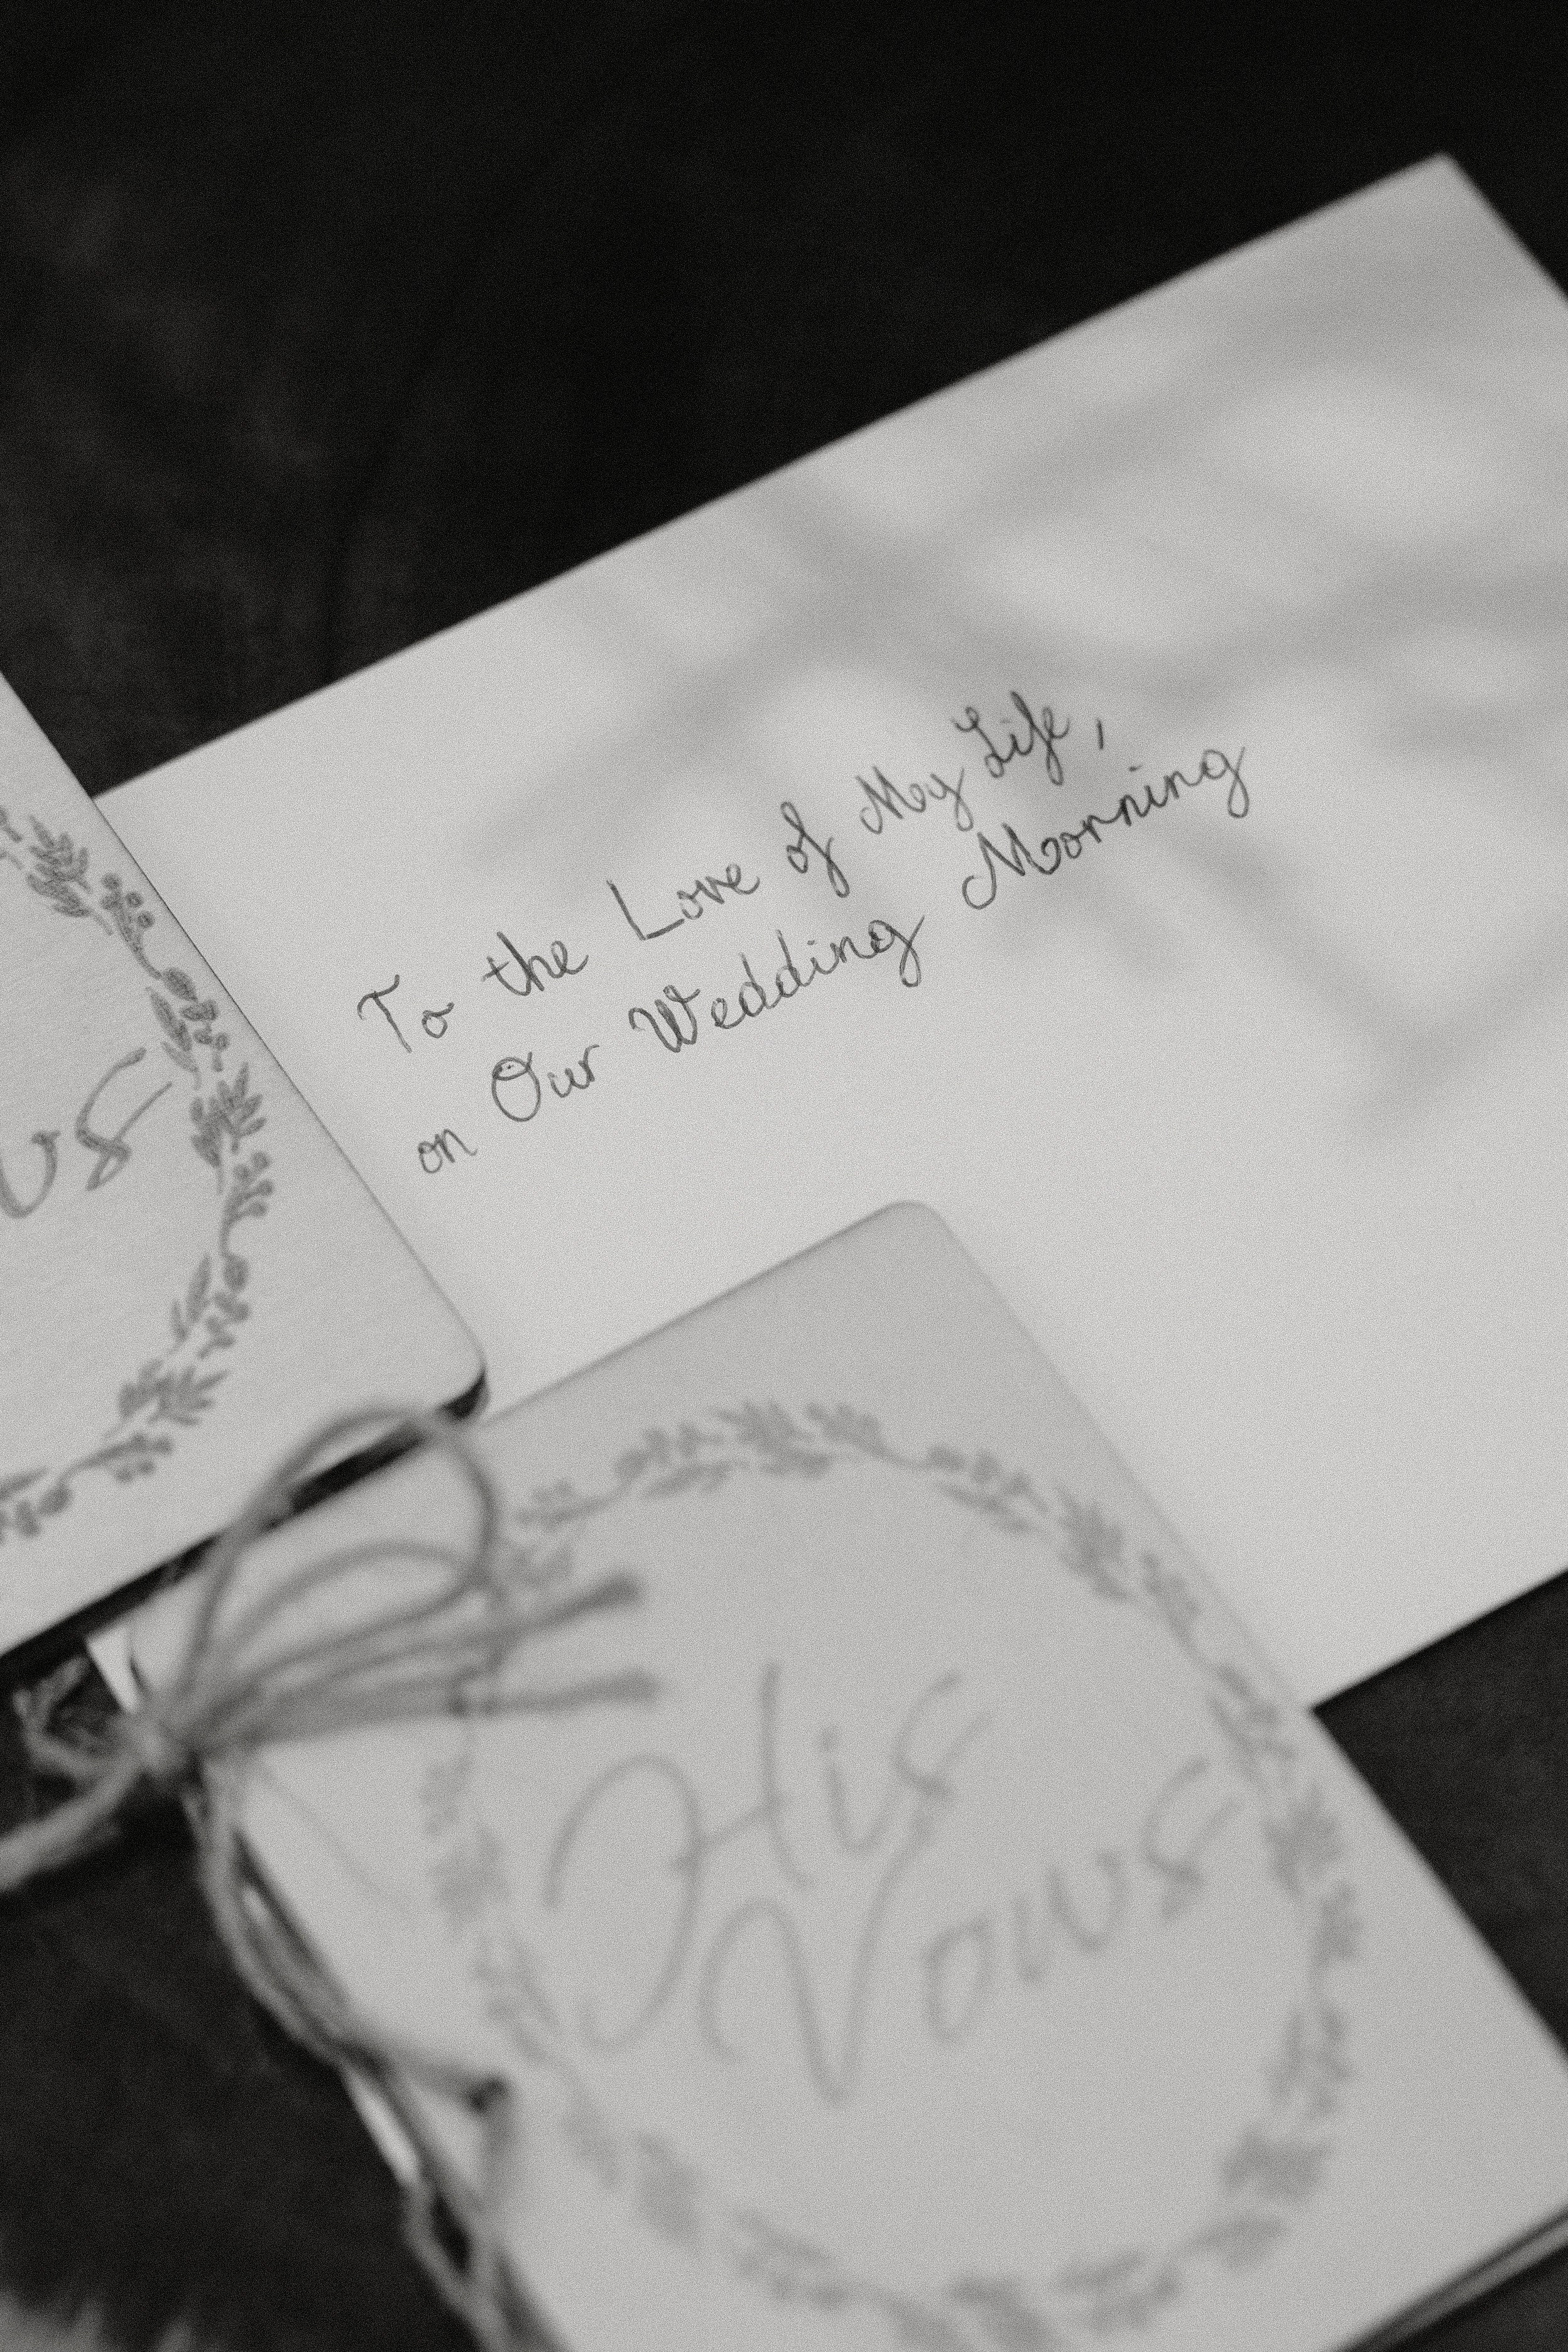 To the Love of My Life,
on Our Wedding Morning
His
Vows